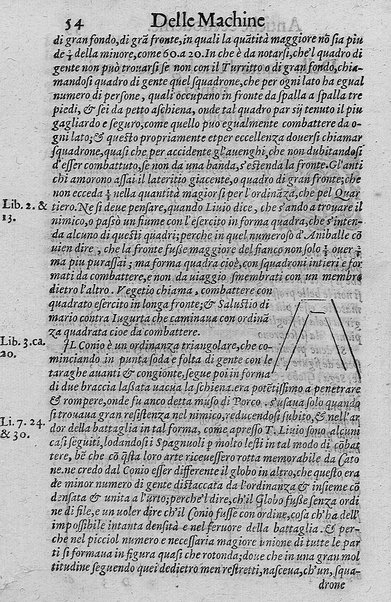 54 Delle Machine
di gran fondo, di grā fronte, in quali la quātità maggiore nō sia piu
de ¼ della minore, come 60. a 20. In che è da notarsi, che'l quadro di
gente non può trouarsi se non con il Turritto o di gran fondo, chia-
mandosi quadro di gente quel squadrone, che per ogni lato ha egual
numero di persone, quali occupano in fronte da spalla a spalla tre
piedi, & sei da petto a schiena, onde tal quadro par sij tenuto il piu
gagliardo e seguro, come quello può egualmente combattere da o-
gni lato; & questo propriamente et per eccellenza douersi chiamar
squadrone, quasi che per accidente gl'auenghi, che non dubitandosi
d'esser combattuto, se non da una banda, s'estenda la fronte. Gl'anti
chi amorono assai il lateritio giacente, o quadro di gran fronte; che
non ecceda nella quantità magior si per l'ordināza, che pel Quar
Lib. 2. & 13.
tiero. Ne si deue pensare, quando Liuio dice, che s'andò a trouare il
nimico, o passò un fiume con l'esercito in forma quadra, che s'inten-
da alcuno di questi quadri; perche in quel numeroso d'Aniballe cō
uien dire, che la fronte fusse maggiore del fianco non solo
ma piu purassai; ma forma quadra cioè, con squadroni intieri e for
mati da combattere, e non da uiaggio smembrati con un membro
dietro l'altro. Vegetio chiama, combattere con
quadrato esercito in longa fronte; & Salustio di
mario contra Iugurta che caminaua con ordinā
za quadrata cioe da combattere.
Lib. 3. ca. 20.
IL Conio è un ordinanza triangolare, che co-
minciando in punta soda e folta di gente con le
taraghe auanti & congionte, segue poi in forma
di due braccia lassāta uacua la schiena. era potētissimo a penetrare
& rompere, onde fu anco detta muso di Porco. s'usaua solo quando
si trouaua gran resistenza nel nimico, reducendosi subito, & nell'ar
Li. 7. 24. & 30.
dor della battaglia in tal forma, come apresso T. Liuio sono alcuni
casi seguiti, lodandosi i Spagnuoli p molto lesti in tal modo di cōbat
tere, bē che cō q̄sta loro arte riceuessero rotta memorabile da Cato
ne. ne credo dal Conio esser differente il globo in altro, che questo era
de minor numero di gente distaccata da l'ordinanza & insieme cō
densata & unita a l'urto; perche'l dire, ch'il Globo fusse senza ordi
ne di file, e un uoler dire ch'il Conio fusse con ordine, cosa ch'ha del-
l'impossibile intanta densità e nel feruore della battaglia. & per-
che nel picciol numero e necessaria magiore unione di tutte le par
ti si formaua in figura quasi che rotonda; doue che in una gran mol
titudine seguendo quei dedietro men restretti, nasceua, ch'un, squa-
drone